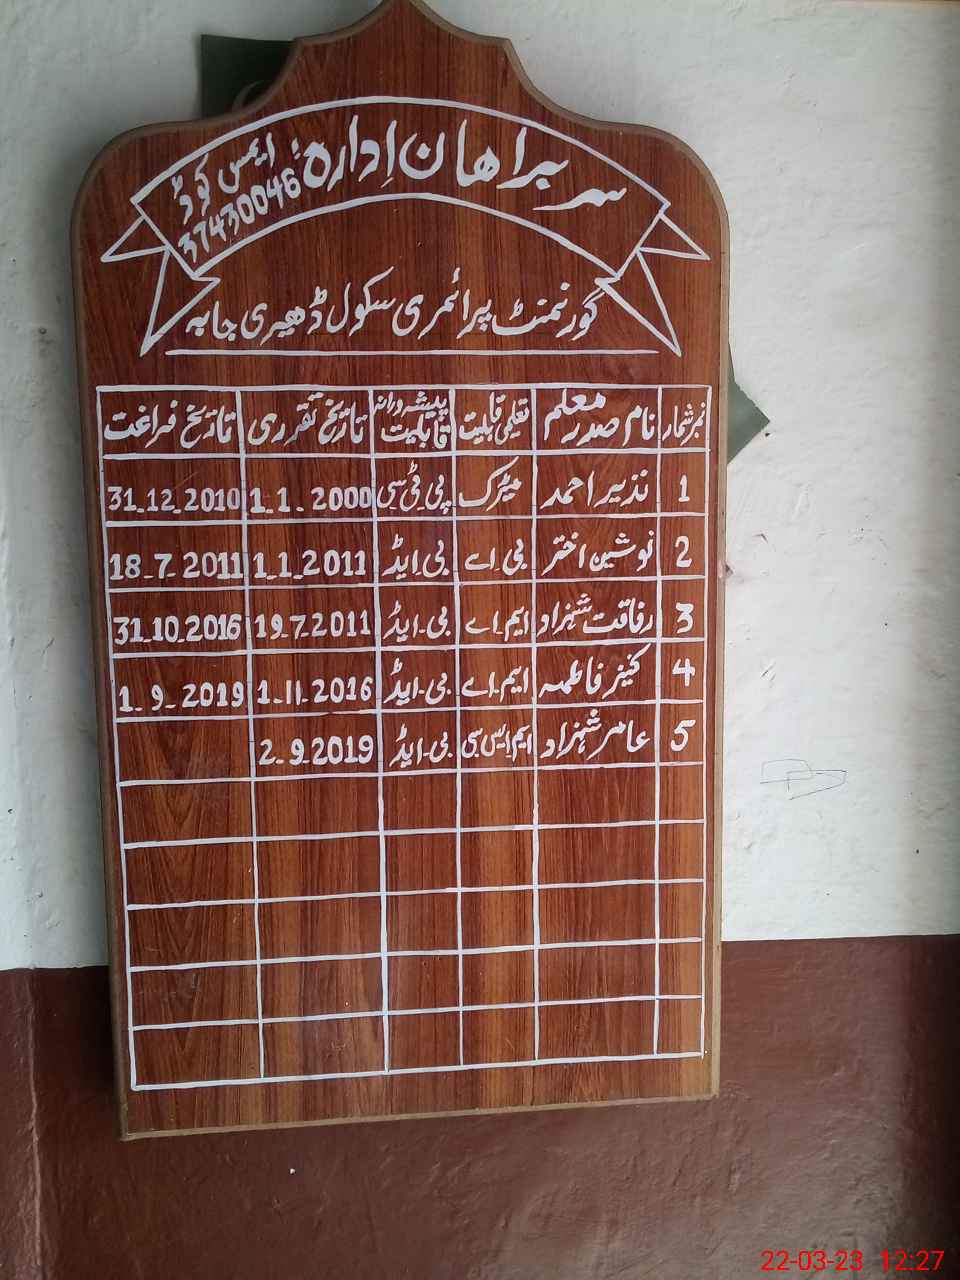 سربراہان اِدارہ ایمس کوڈ: 37430046
گورنمنٹ پرائمری سکول ڈھیری جابہ
نمبر شمار نام صدر معلم تعلیمی قابلیت پیشہ ورانہ قابلیت تاریخ تقرری تاریخ فراغت
1 نذیر احمد میٹرک پی ٹی سی 1.1.2000 31.12.2010
2 نوشین اختر بی اے بی ایڈ 1.1.2011 18.7.2011
3 رفاقت شہزاد ایم اے بی ایڈ 19.7.2011 31.10.2016
4 کنیز فاطمہ ایم اے بی ایڈ 1.11.2016 1.9.2019
5 عامر شہزاد ایم ایس سی بی ایڈ 2.9.2019
22-03-23 12:27